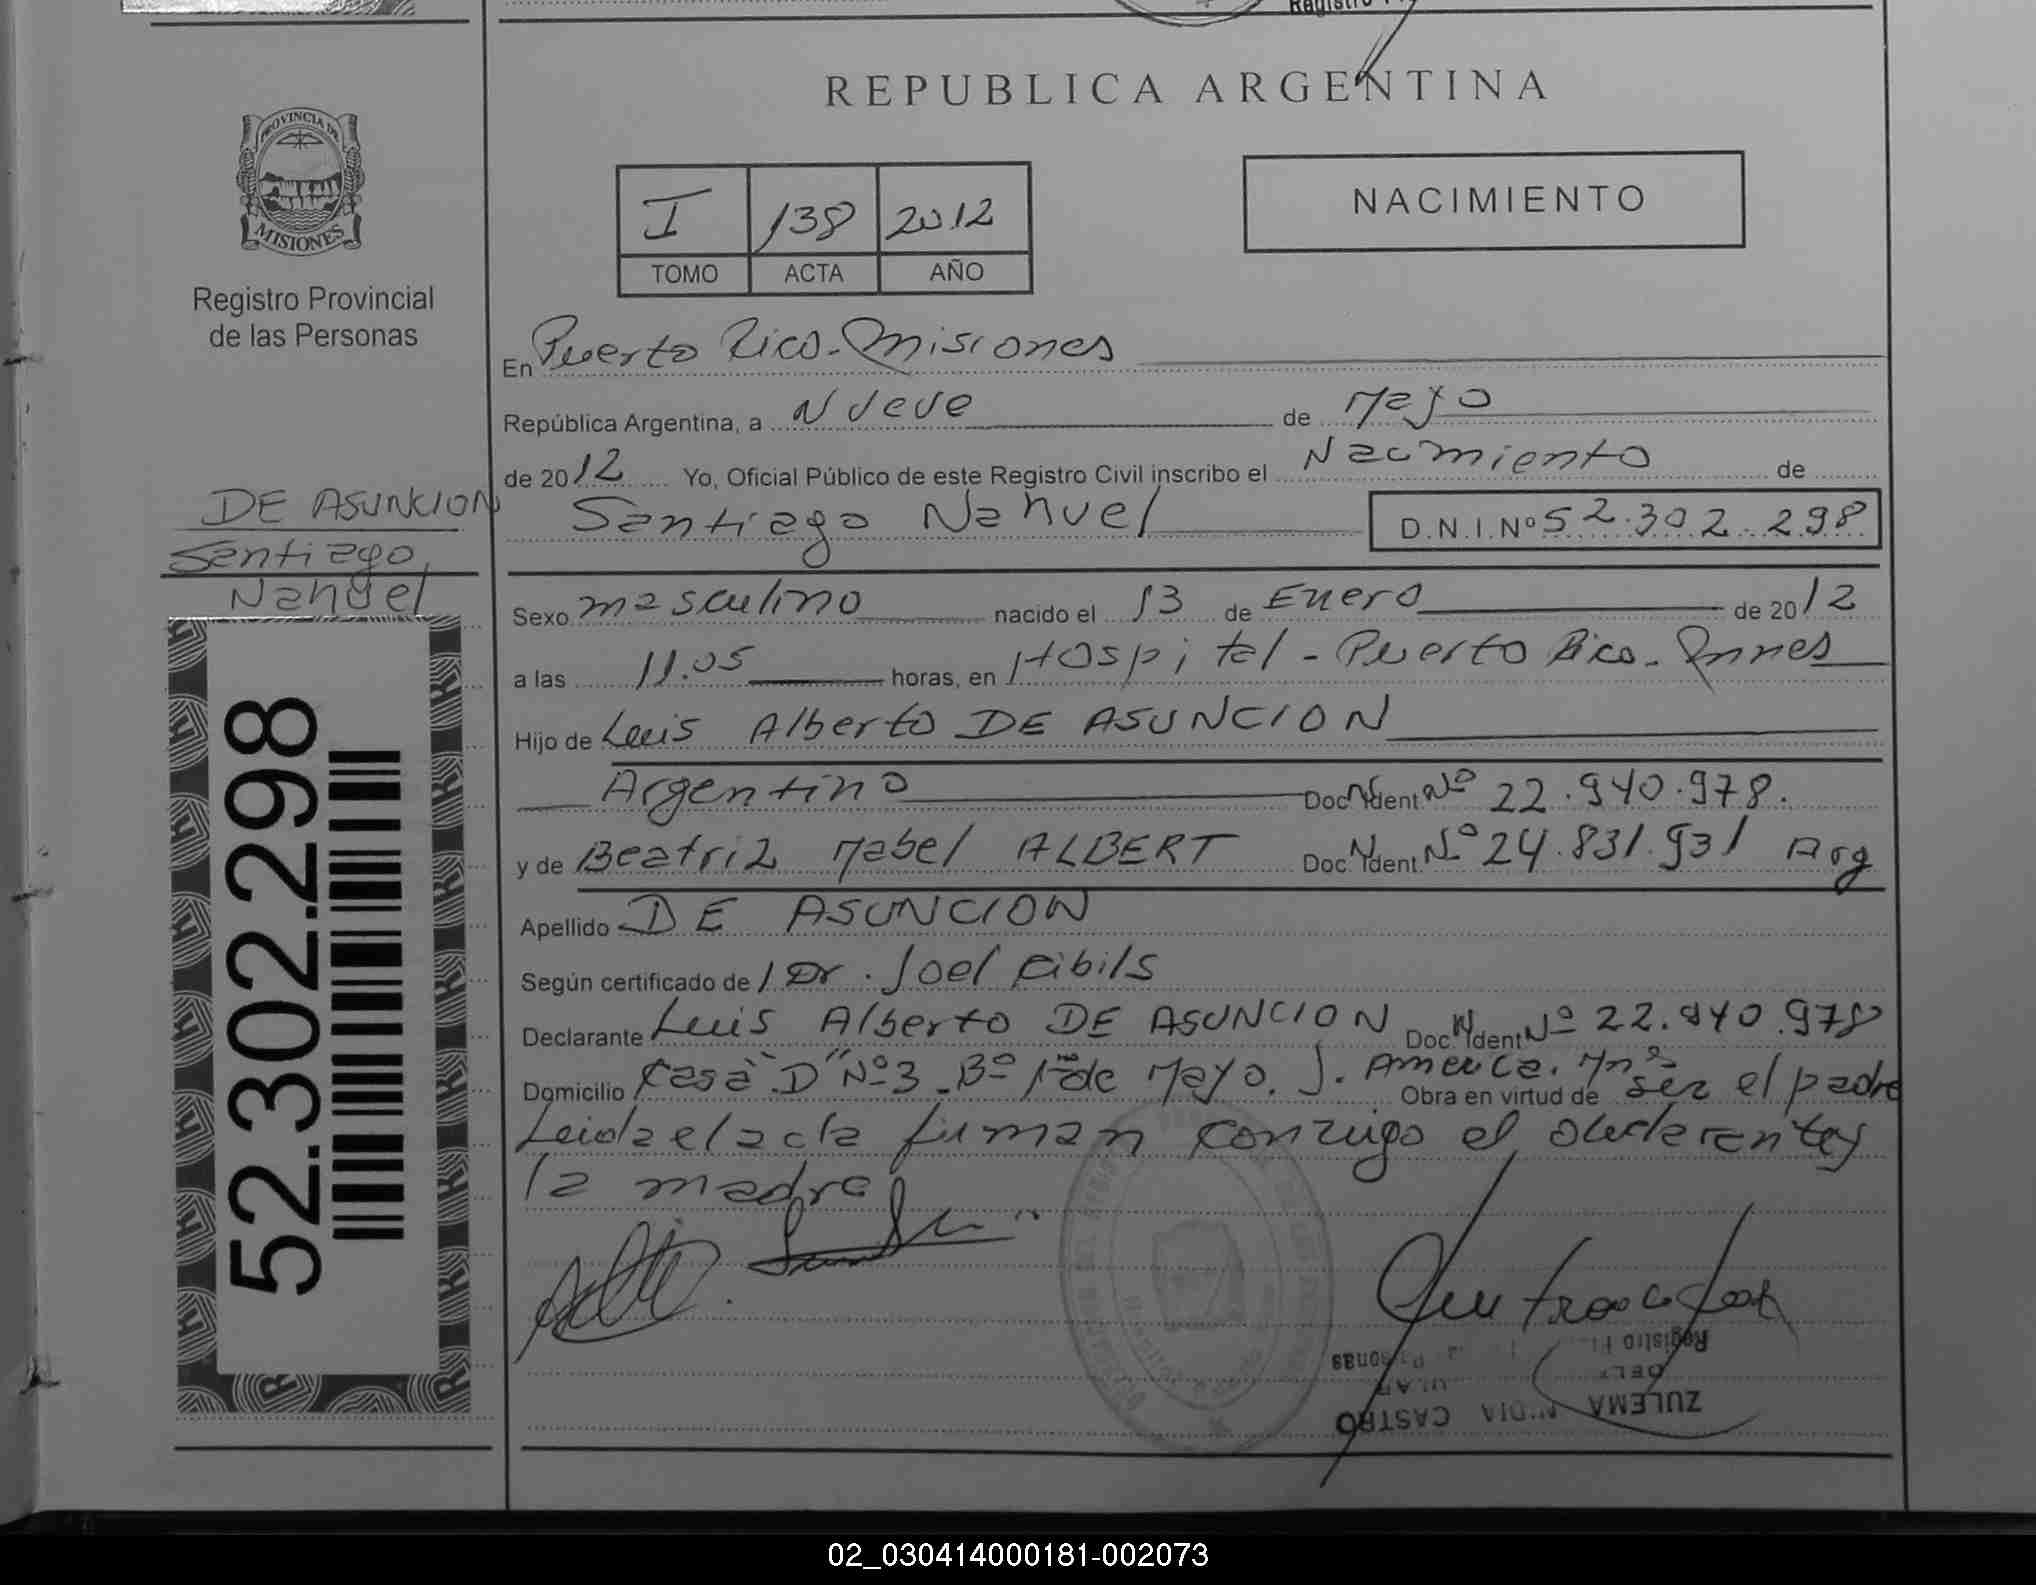 REPUBLICA ARGENTINA
PROVINCIA DE
MISIONES
Registro Provincial
de las Personas
I 138 2012
TOMO ACTA AÑO
NACIMIENTO
En Puerto Rico - Misiones
República Argentina, a Nueve de Mayo
de 2012 Yo, Oficial Público de este Registro Civil inscribo el Nacimiento de
Santiago Nahuel D.N.I.Nº 52.302.298
DE ASUNCION
Santiago
Nahuel
52.302.298
Sexo masculino nacido el 13 de Enero de 2012
a las 11.05 horas, en Hospital - Puerto Rico - Mnes
Hijo de Luis Alberto DE ASUNCION
Argentino Doc. Ident Nº 22.940.978.
y de Beatriz Mabel ALBERT Doc. Ident. Nº 24.831.931 Arg
Apellido DE ASUNCION
Según certificado de Dr. Joel
Declarante Luis Alberto DE ASUNCION Doc. Ident Nº 22.940.978
Domicilio Casa "D" Nº 3 - Bº 1º de Mayo. J. America. Mns Obra en virtud de ser el padre
Leida el acta firman conmigo el declarante y
la madre
ZULEMA CASTRO
02_030414000181-002073